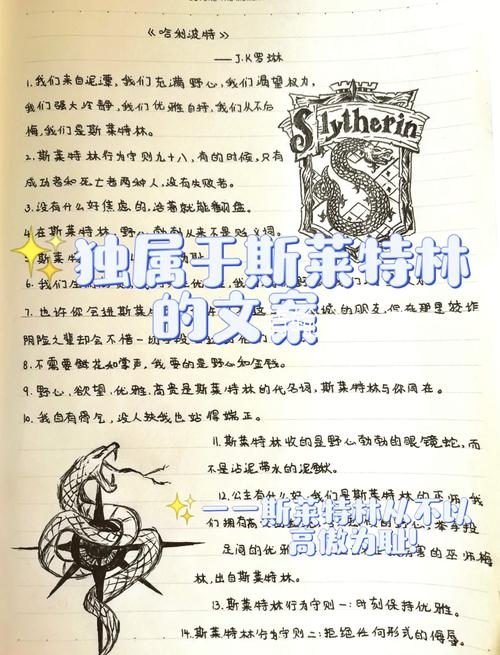 《哈利波特》
——J.K罗琳
1.我们来自泥潭，我们充满野心，我们渴望权力，
我们强大冷静，我们优雅自持，我们从不后
悔，我们是斯莱特林。
Slytherin
2.斯莱特林行为守则九十八，有的时候，只有
成功者和死亡者两种人，没有失败者。
3.没有什么好焦虑的，活着就能翻盘。
4.在斯莱特林，野心勃勃从来不是贬义词。
独属于斯莱特林
的文案
6.我们
7.也许你会进斯莱
的朋友，但在那里狡诈
阴险之辈却会不惜一切
8.不需要鲜花和掌声，我要的是野心和金钱。
9.野心，欲望，优雅，高贵是斯莱特林的代名词，斯莱特林与你同在。
10.我自有骨气，没人扶我也站得端正。
11.斯莱特林收的是野心勃勃的眼镜蛇，而
不是沾泥带水的泥鳅。
12.公主有什么好，我们是斯莱特林的巫师，我
们拥有
——斯莱特林从不以
高傲为耻!
足间的优雅
害的巫师梅
林，出自斯莱特林。
13.斯莱特林行为守则一：时刻保持优雅。
14.斯莱特林行为守则二：拒绝任何形式的侮辱。